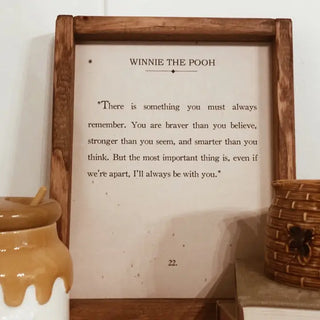 WINNIE THE POOH
"There is something you must always
remember. You are braver than you believe,
stronger than you seem, and smarter than you
think. But the most important thing is, even if
we're apart, I'll always be with you."
22.